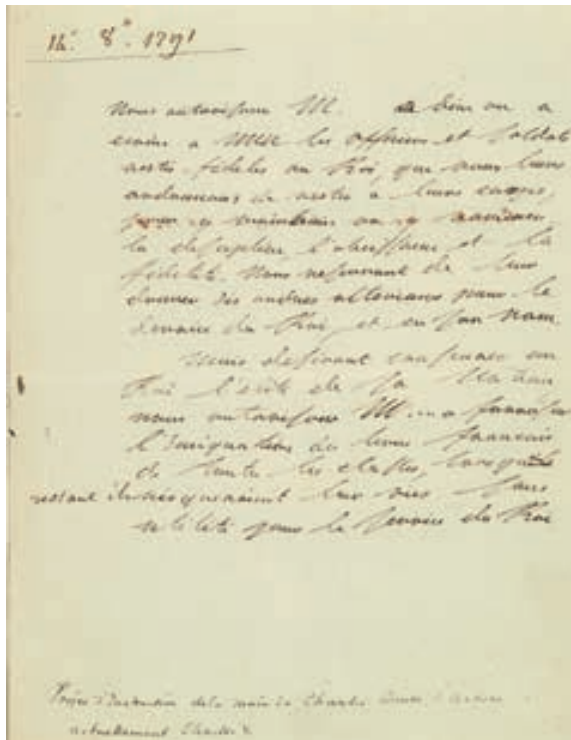 14. 8.re 1791
Nous autorisons M. à bien ou a
ecrire a MM les officiers et soldats
restés fideles au Roi, que nous leurs
ordonnons de rester a leurs corps,
pour y maintenir ou y ramener
la discipline l'obeissance et la
fidelité. Nous reservant de leur
donner des ordres ulterieurs pour le
service du Roi et en son nom.
Mais desirant conserver au
Roi l'elite de sa Nation
nous autorisons M. a favoriser
l'Emigration des bons francais
de toutes les classes, lorsqu'
restant ils risqueraient leur vies sans
utilité pour le service du Roi
Projet d'instruction de la main de Charles
actuellement Charles X